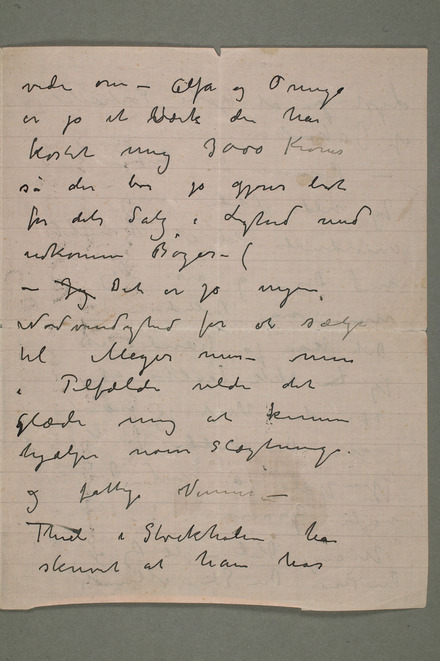 vide om – Alfa og Omega
er jo et Værk der har
kostet mig 3000 Kroner
så der bør jo gjøres lidt
for dets Salg i Lighed med
udkomne Bøger – (
– Jeg Det er jo ingen
Nødvendighed for at sælge
til Meyer men – men
i Tilfælde vilde det
glæde mig at kunne
hjælpe nogen Slægtninge.
og fattige Venner –
Thiel i Stockholm har
skrevet at han har